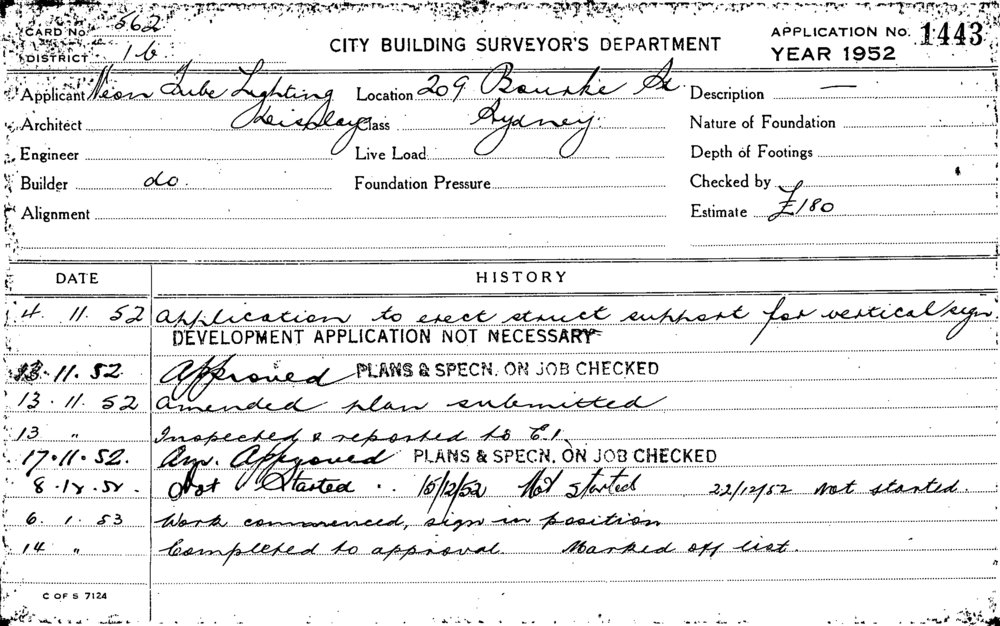 CARD No. 562
DISTRICT 16
CITY BUILDING SURVEYOR'S DEPARTMENT
APPLICATION No. 1443
YEAR 1952
Applicant Neon Tube Lighting Location 209 Bourke St Description —
Architect Displays Class Sydney. Nature of Foundation
Engineer Live Load Depth of Footings
Builder do. Foundation Pressure Checked by
Alignment Estimate £180
DATE HISTORY
4. 11. 52 Application to erect struct support for vertical sign.
DEVELOPMENT APPLICATION NOT NECESSARY
13.11.52 Approved PLANS & SPECN. ON JOB CHECKED
13.11.52 Amended plan submitted
13 " Inspected & reported to E.I.
17.11.52. Am. Approved PLANS & SPECN. ON JOB CHECKED
8.12.52. Not Started .. 15/12/52 Not started 22/12/52 Not started.
6. 1. 53 Work commenced, sign in position
14 " Completed to approval. Marked off list.
C OF S 7124